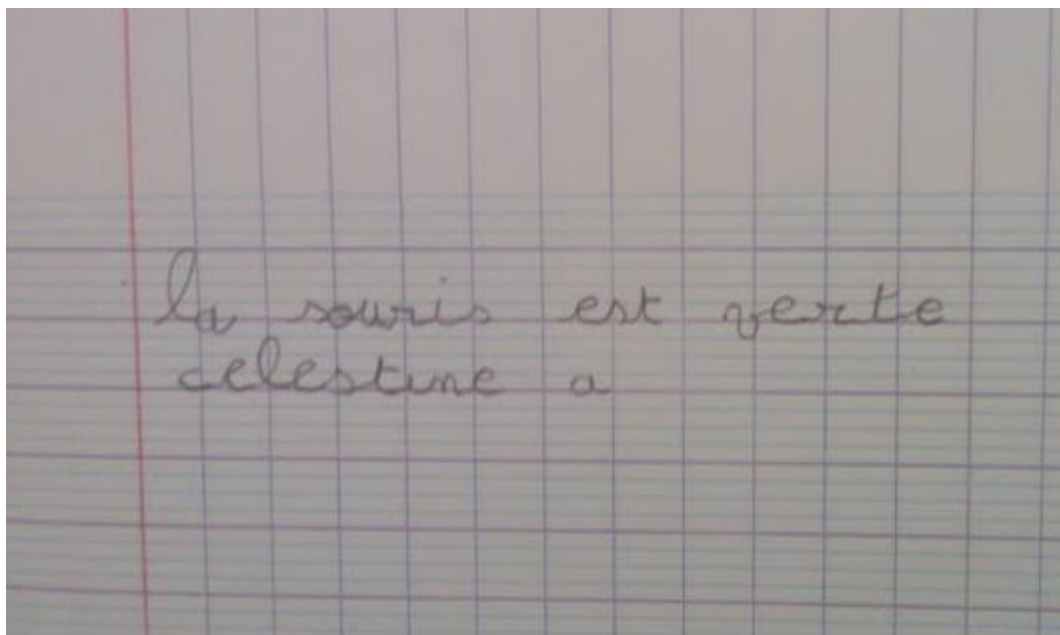 la souris est verte
celestine a